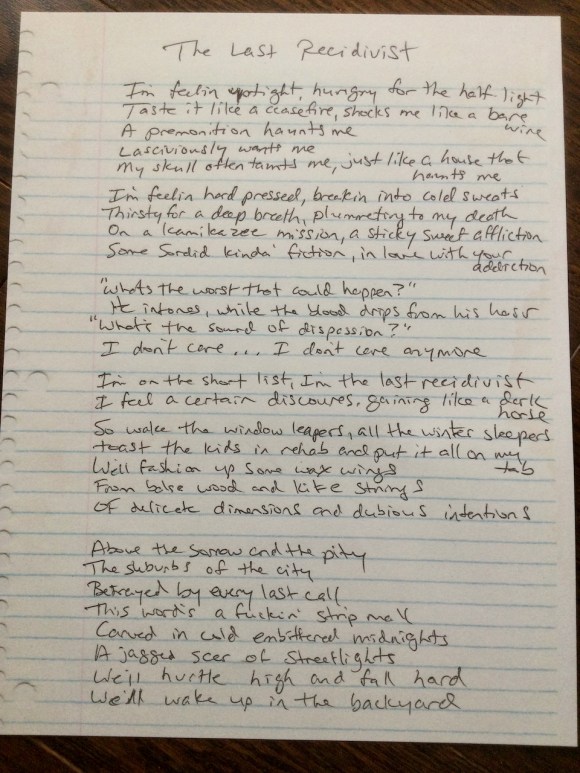 The Last Recidivist
I'm feelin uptight, hungry for the half light
Taste it like a ceasefire, shocks me like a bare
wire
A premonition haunts me
Lasciviously wants me
My skull often taunts me, just like a house that
haunts me
I'm feelin hard pressed, breakin into cold sweats
Thirsty for a deep breath, plummeting to my death
On a kamikazee mission, a sticky sweet affliction
Some Sordid kinda' fiction, in love with your
addiction
"Whats the worst that could happen?"
He intones, while the blood drips from his hair
"What's the sound of dispassion?"
I don't care... I don't care anymore
I'm on the short list, I'm the last recidivist
I feel a certain discourse, gaining like a dark
horse
So wake the window leapers, all the winter sleepers
toast the kids in rehab and put it all on my
tab
We'll fashion up some wax wings
From balse wood and kite strings
Of delicate dimensions and dubious intentions
Above the sorrow and the pity
The suburbs of the city
Betrayed by every last call
This word's a fuckin' strip mall
Carved in cold embittered midnights
A jagged scar of Streetlights
We'll hurtle high and fall hard
We'll wake up in the backyard